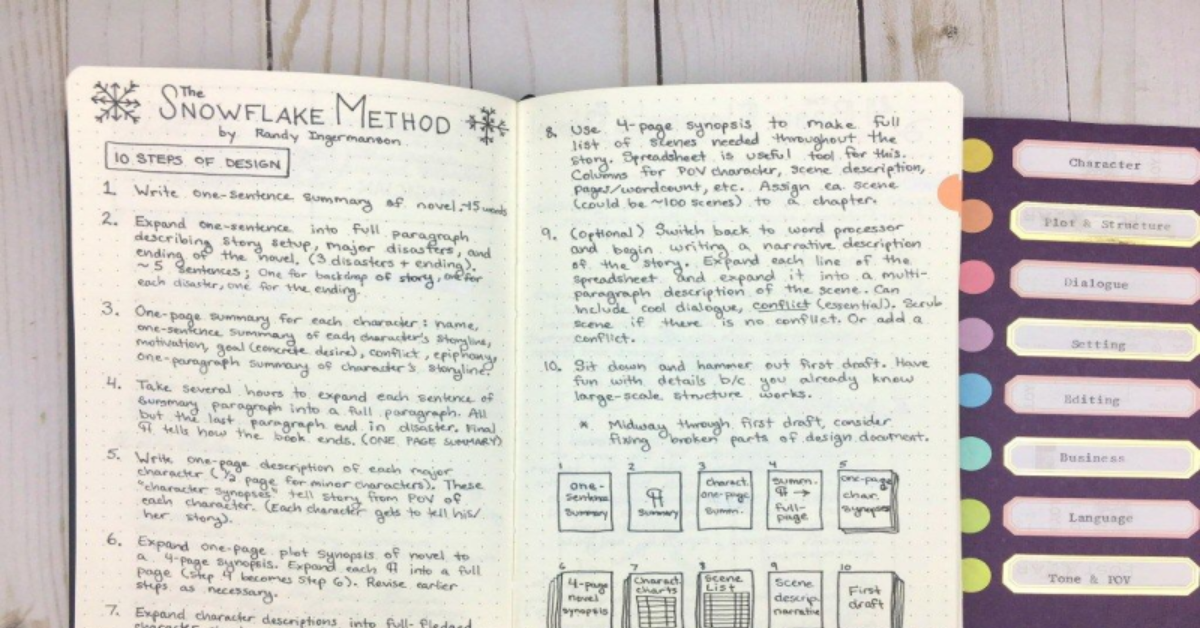 The
SNOWFLAKE METHOD
by Randy Ingermanson
10 STEPS OF DESIGN
1. Write one-sentence summary of novel. ~15 words
2. Expand one-sentence into full paragraph
describing story setup, major disasters, and
ending of the novel. (3 disasters + ending).
~5 sentences; One for backdrop of story, one for
each disaster, one for the ending.
3. One-page summary for each character: name,
one-sentence summary of each character's storyline,
motivation, goal (concrete desire), conflict, epiphany,
one-paragraph summary of character's storyline.
4. Take several hours to expand each sentence of
summary paragraph into a full paragraph. All
but the last paragraph end in disaster. Final
¶ tells how the book ends. (ONE PAGE SUMMARY)
5. Write one-page description of each major
character (1/2 page for minor characters). These
"character synopses" tell story from POV of
each character. (Each character gets to tell his/
her story).
6. Expand one-page plot synopsis of novel to
a 4-page synopsis. Expand each ¶ into a full
page (step 4 becomes step 6). Revise earlier
steps as necessary.
7. Expand character descriptions into full-fledged
8. Use 4-page synopsis to make full
list of scenes needed throughout the
story. Spreadsheet is useful tool for this.
Columns for POV character, scene description,
pages/wordcount, etc. Assign ea. scene
(could be ~100 scenes) to a chapter.
9. (Optional) Switch back to word processor
and begin writing a narrative description
of the story. Expand each line of the
spreadsheet and expand it into a multi-
paragraph description of the scene. Can
include cool dialogue, conflict (essential). Scrub
scene if there is no conflict. Or add a
conflict.
10. Sit down and hammer out first draft. Have
fun with details b/c you already know
large-scale structure works.
* Midway through first draft, consider
fixing broken parts of design document.
1
one-
sentence
summary
2
¶
summary
3
charact.
one-page
summ.
4
summ.
¶ →
full-
page
5
one-page
char.
synopses
6
4-page
novel
synopsis
7
charact.
charts
8
Scene
List
9
Scene
descrip.
narrative
10
First
draft
Character
Plot & Structure
Dialogue
Setting
Editing
Business
Language
Tone & POV